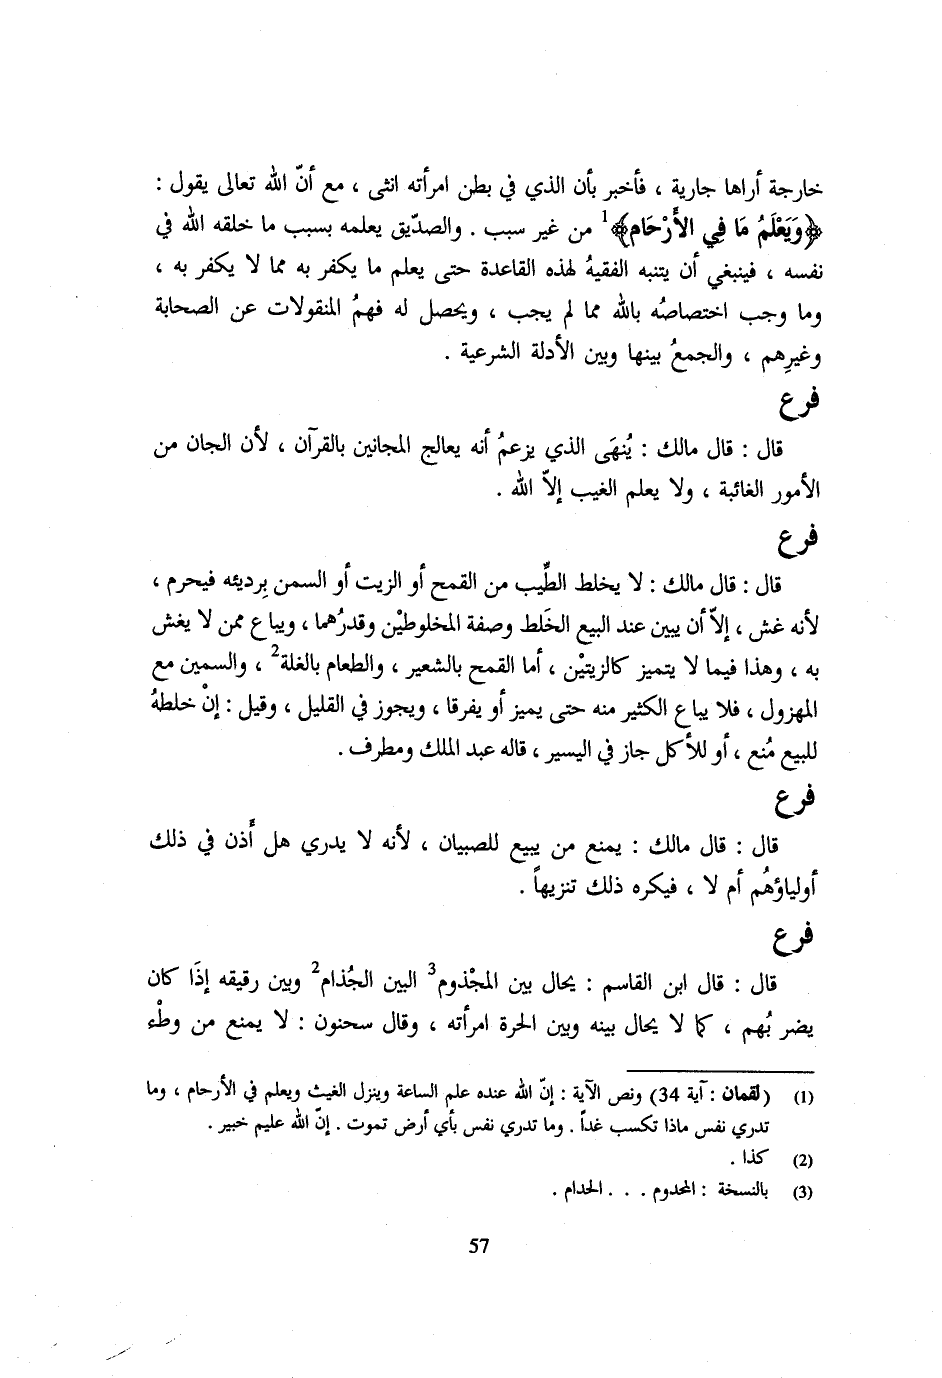 خارجة أراها جارية ، فأخبر بأن الذي في بطن امرأته انثى ، مع أنّ الله تعالى يقول :
﴿وَيَعْلَمُ مَا فِي الأَرْحَام﴾1 من غير سبب . والصدّيق يعلمه بسبب ما خلقه الله في
نفسه ، فينبغي أن يتنبه الفقيهُ لهذه القاعدة حتى يعلم ما يكفر به مما لا يكفر به ،
وما وجب اختصاصُه بالله مما لم يجب ، ويحصل له فهمُ المنقولات عن الصحابة
وغيرِهم ، والجمعُ بينها وبين الأدلة الشرعية .
فرع
قال : قال مالك : يُنهَى الذي يزعمُ أنه يعالج المجانين بالقرآن ، لأن الجان من
الأمور الغائبة ، ولا يعلم الغيب إلاّ الله .
فرع
قال : قال مالك : لا يخلط الطِّيب من القمح أو الزيت أو السمن بِرديئه فيحرم ،
لأنه غش ، إلاّ أن يبين عند البيع الخَلط وصفة المخلوطيْن وقدرُهما ، ويباع ممن لا يغش
به ، وهذا فيما لا يتميز كالزيتيْن ، أما القمح بالشعير ، والطعام بالغلة2 ، والسمين مع
المهزول ، فلا يباع الكثير منه حتى يميز أو يفرقا ، ويجوز في القليل ، وقيل : إنْ خلطهُ
للبيع مُنع ، أو للأكل جاز في اليسير ، قاله عبد الملك ومطرف .
فرع
قال : قال مالك : يمنع من يبيع للصبيان ، لأنه لا يدري هل أَذن في ذلك
أولياؤهُم أم لا ، فيكره ذلك تنزيهاً .
فرع
قال : قال ابن القاسم : يحال بين المجْذوم3 البين الجُذام2 وبين رقيقه إذَا كان
يضر بُهم ، كما لا يحال بينه وبين الحرة امرأته ، وقال سحنون : لا يمنع من وطْء
(1) (لقمان : آية 34) ونص الآية : إنّ الله عنده علم الساعة وينزل الغيث ويعلم في الأرحام ، وما
تدري نفس ماذا تكسب غداً . وما تدري نفس بأي أرض تموت . إنّ الله عليم خبير .
(2) كذا .
(3) بالنسخة : المحدوم . . . الحدام .
57